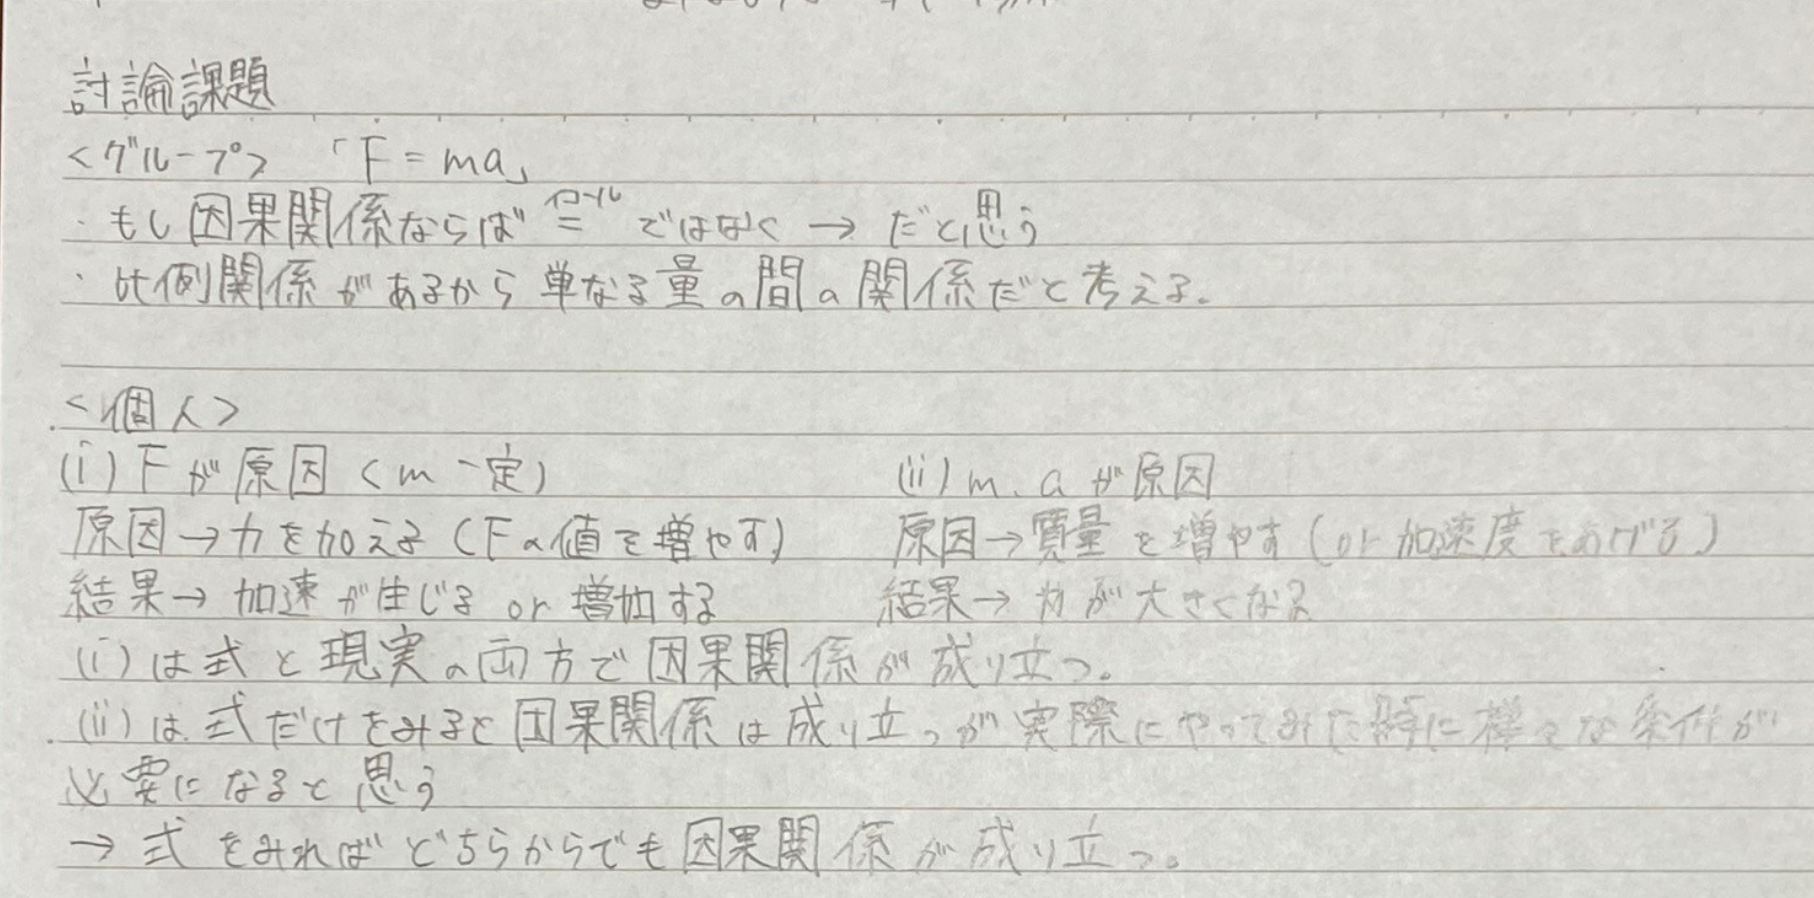 討論課題
<グループ> 「F = ma」
・もし因果関係ならば = イコール ではなく → だと思う
・比例関係があるから単なる量の間の関係だと考える。
<個人>
(i) Fが原因 (m 一定)
(ii) m、aが原因
原因→力を加える (Fの値を増やす)
原因→質量を増やす (or 加速度をあげる)
結果→ 加速が生じる or 増加する
結果→ 力が大きくなる
(i) は式と現実の両方で因果関係が成り立つ。
(ii) は式だけをみると因果関係は成り立つが実際にやってみた時に様々な条件が
必要になると思う
→ 式をみればどちらからでも因果関係が成り立つ。